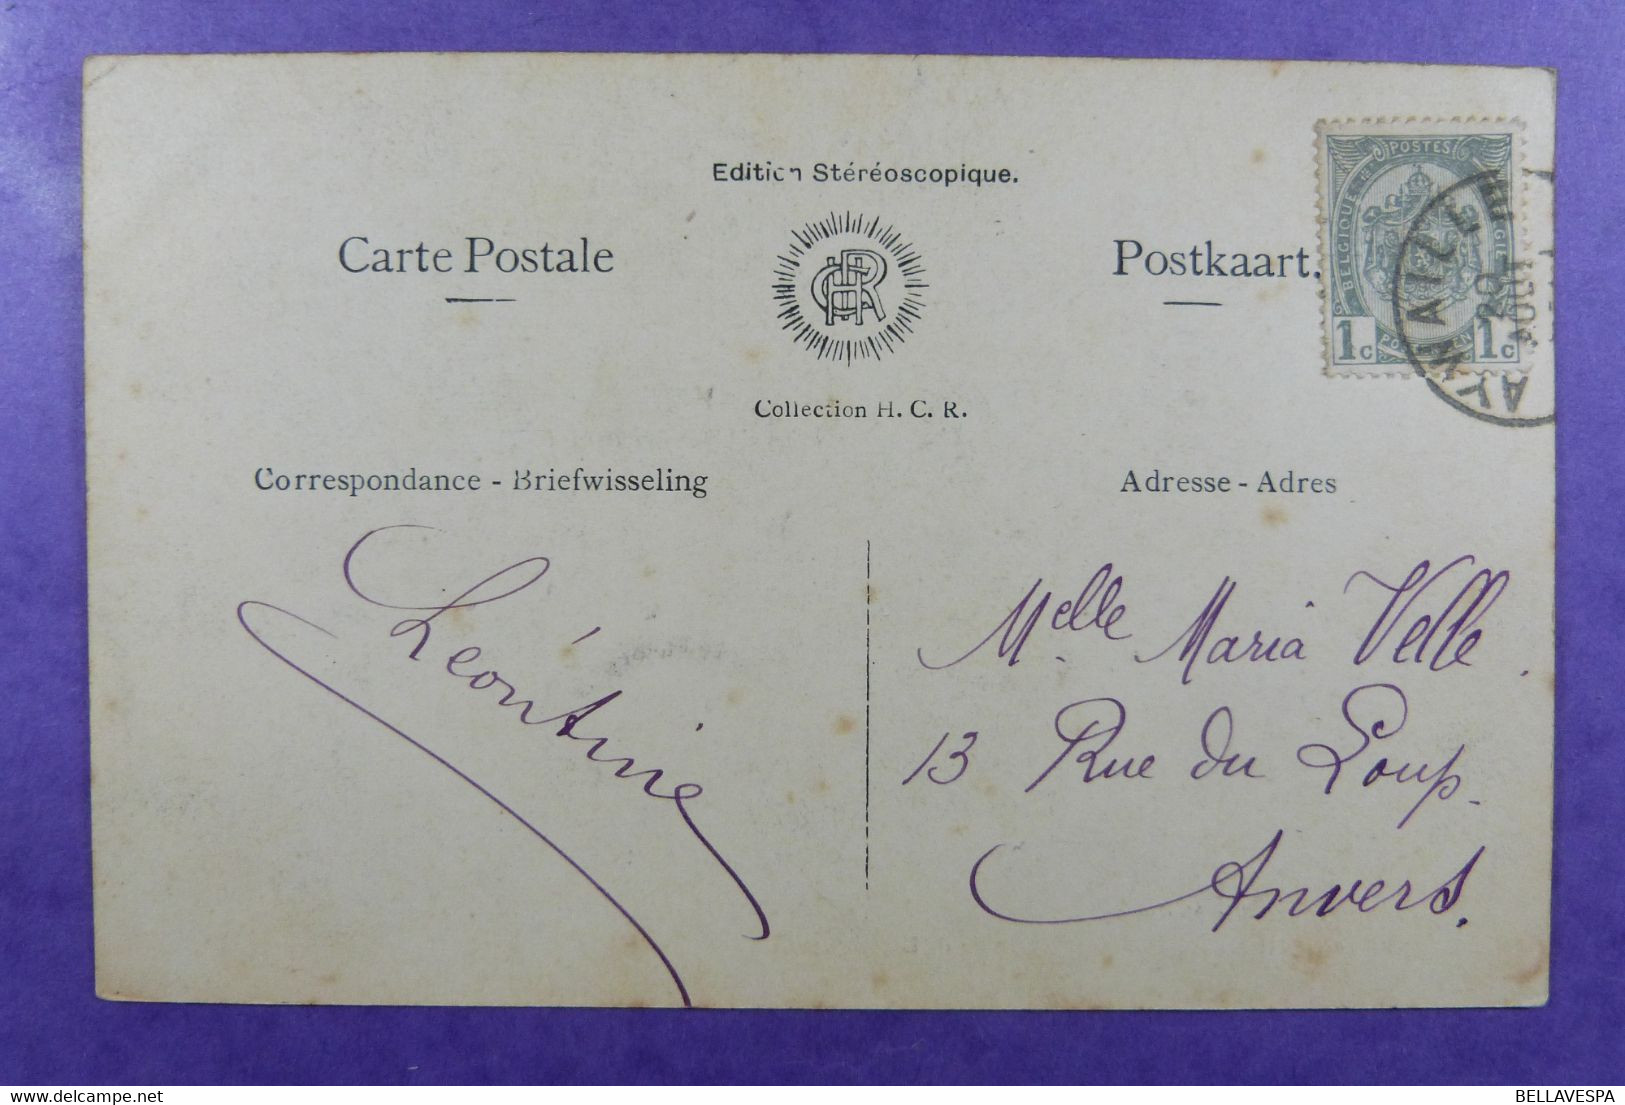 Edition Stéréoscopique.
Carte Postale
HCR
Postkaart.
Collection H. C. R.
POSTES
BELGIQUE
BELGIE
1c
1c
AYWAILLE
20
AOUT
Correspondance - Briefwisseling
Adresse - Adres
Léontine
Melle Maria Velle.
13 Rue du Loup.
Anvers.
BELLAVESPA